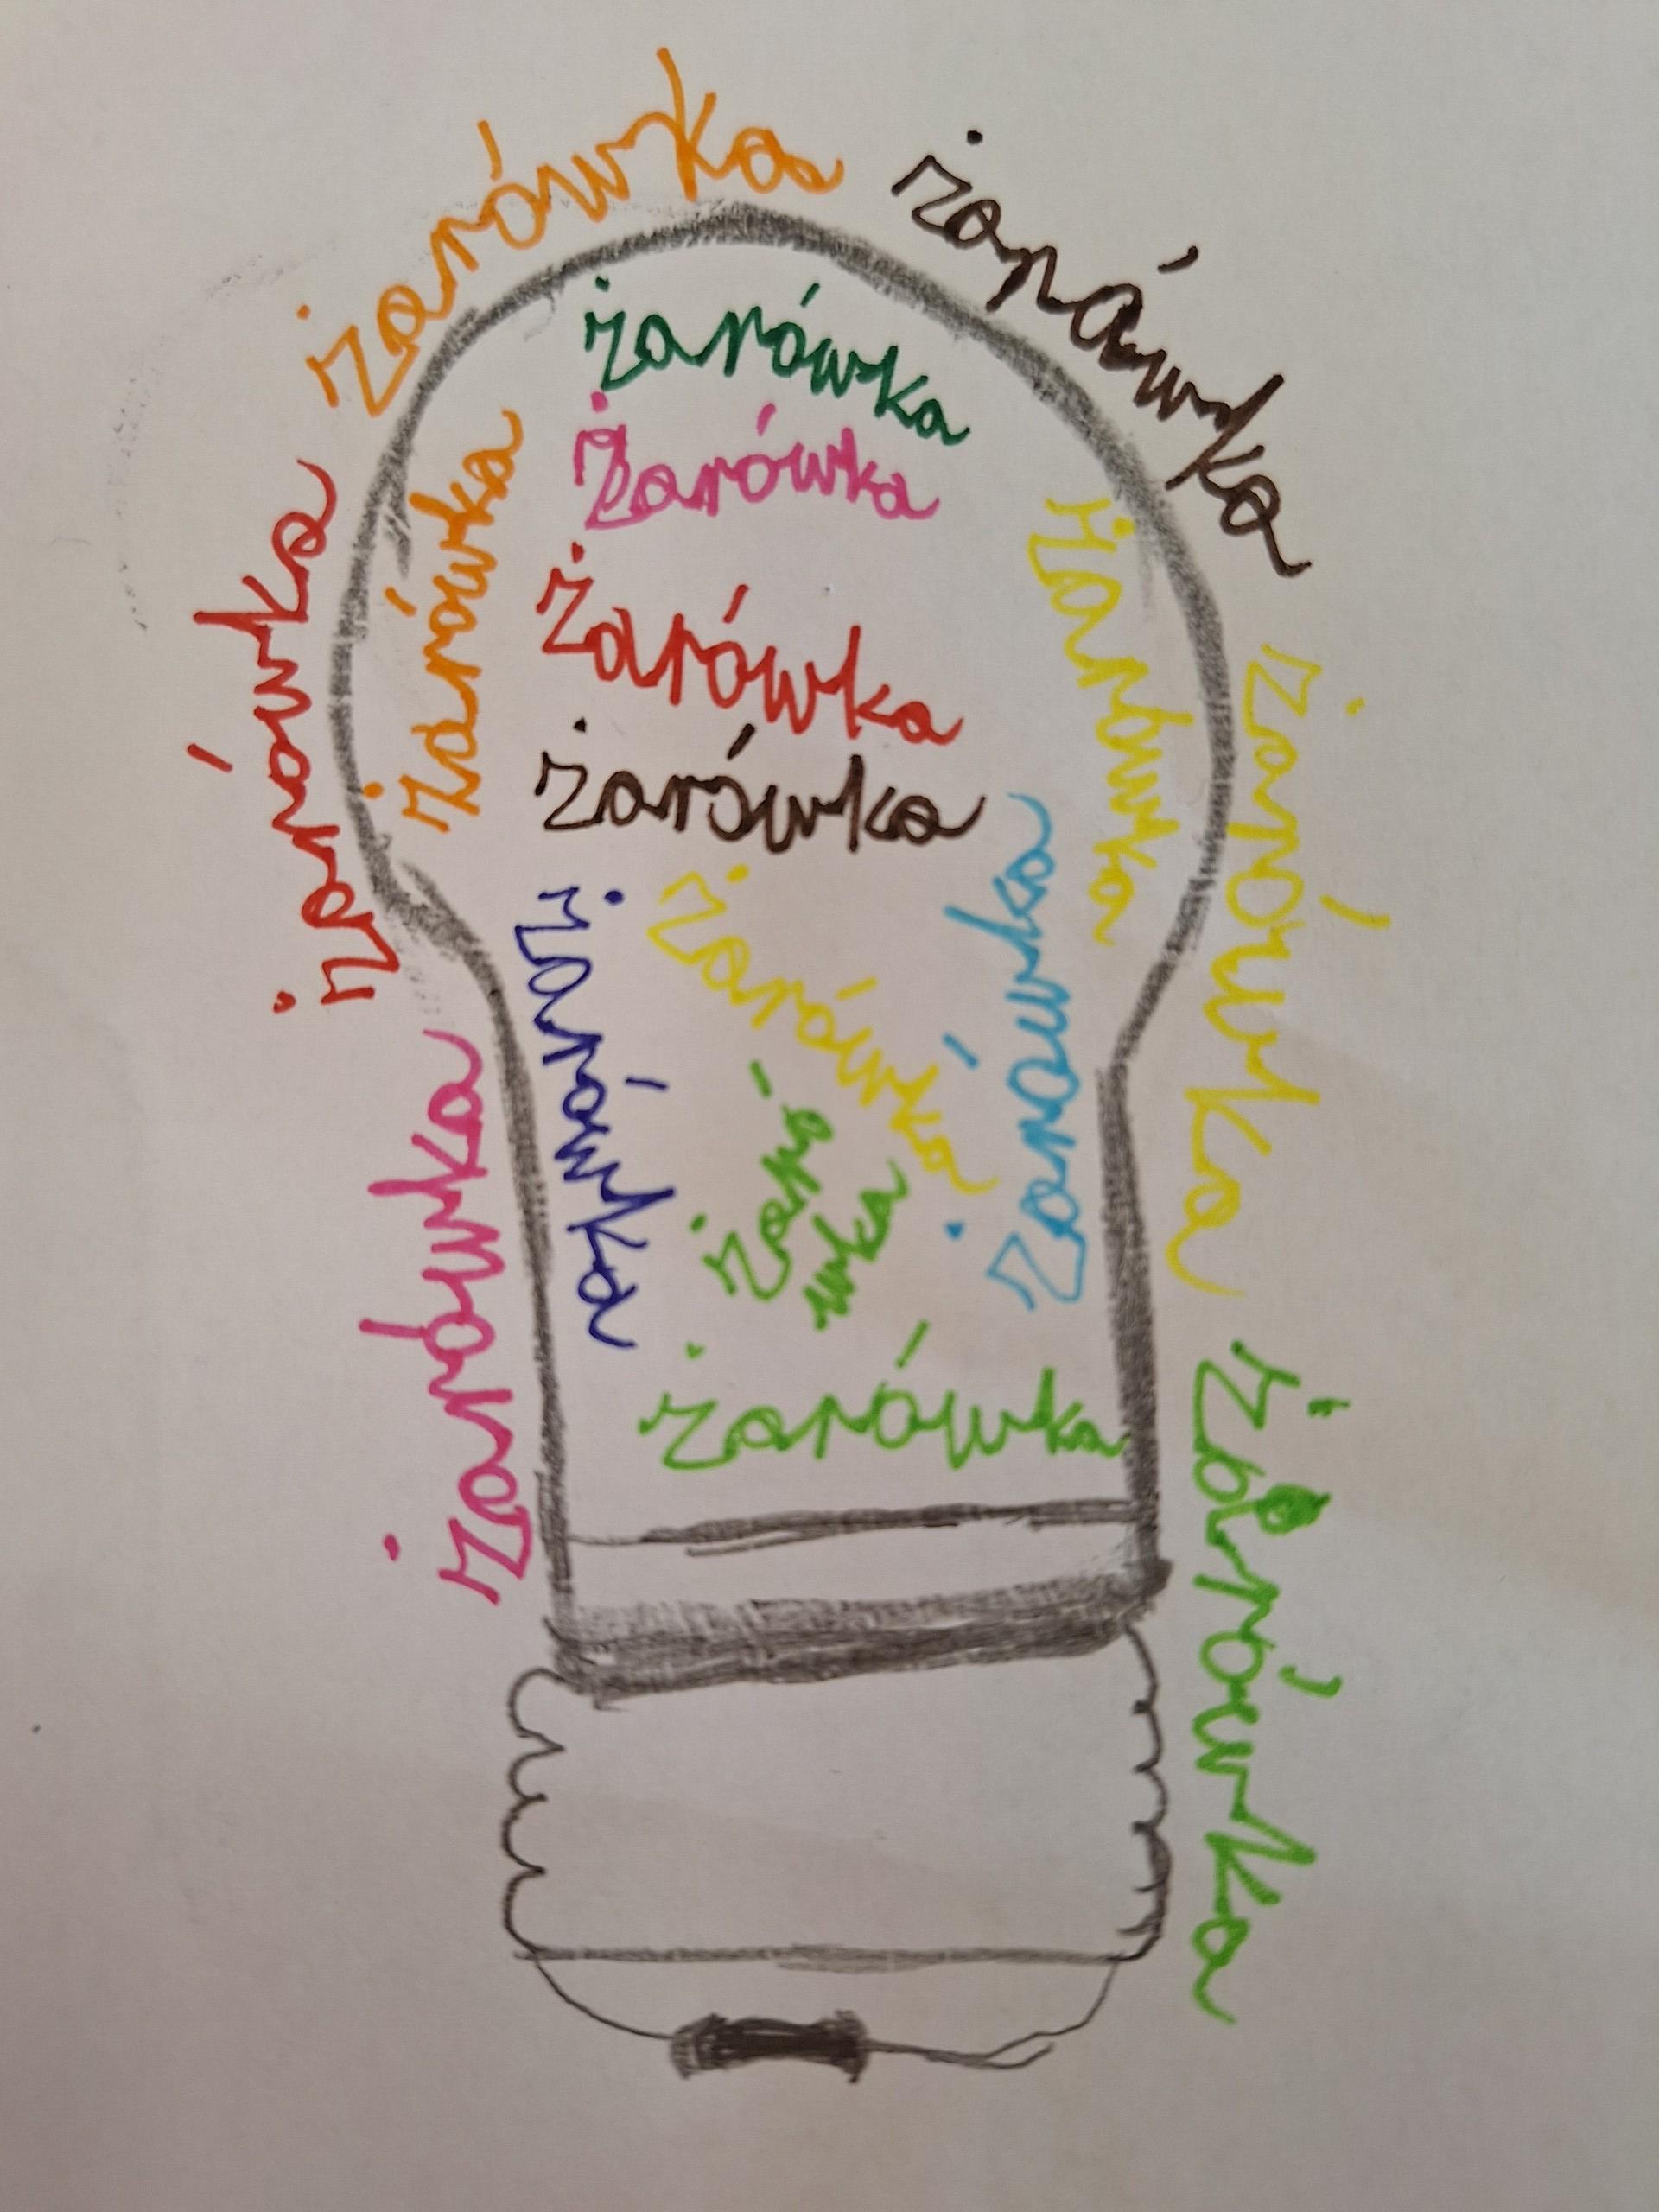 żarówka
żarówka
żarówka
żarówka
żarówka
żarówka
żarówka
żarówka
żarówka
żarówka
żarówka
żarówka
żarówka
żarówka
żaró
wka
żarówka
żarówka
żarówka